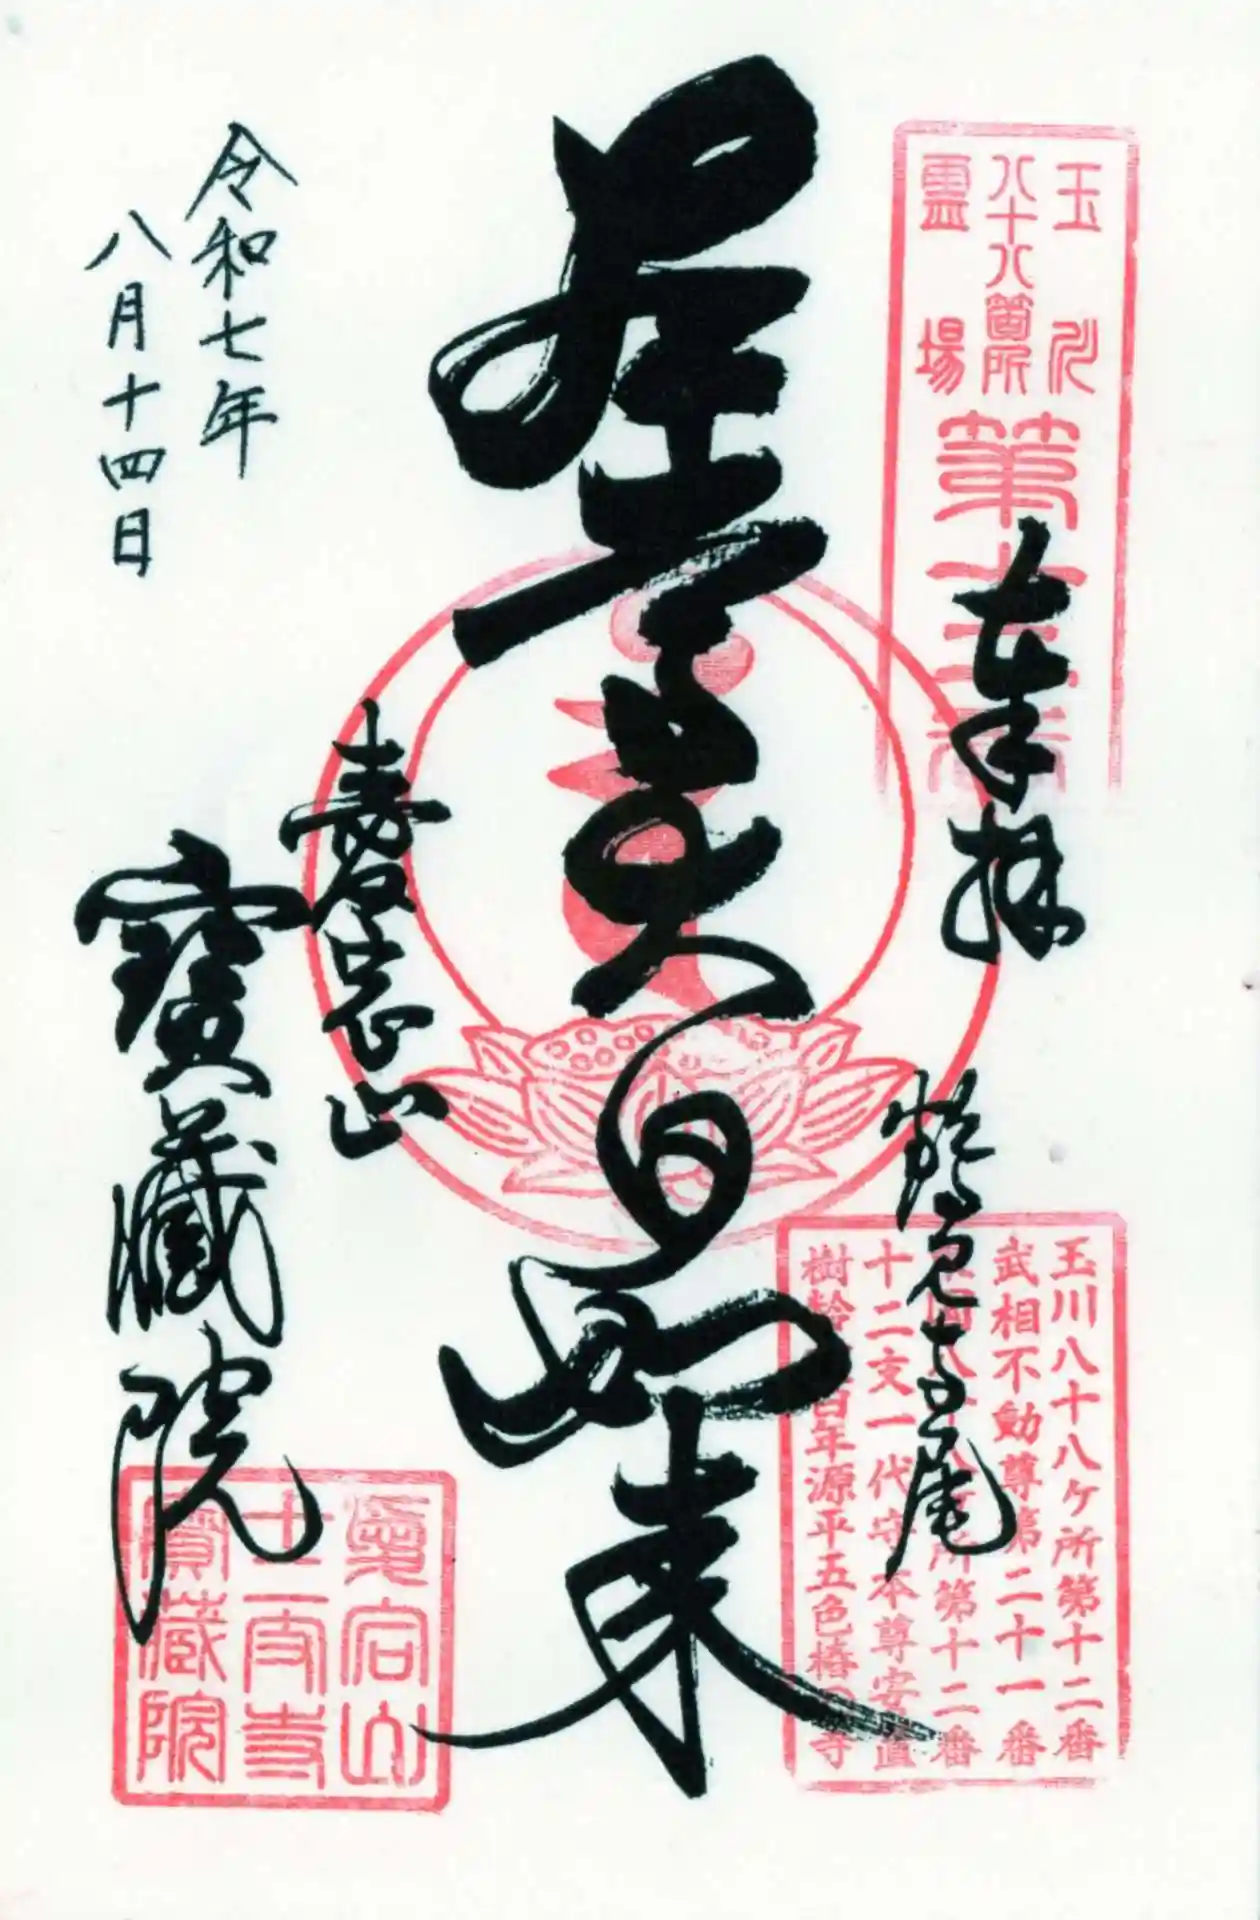 玉川
八十八箇所
霊場
第十二番
奉拝
鶴見高尾
玉川八十八ヶ所第十二番
武相不動尊第二十一番
所第十二番
十二支一代守本尊安置
樹齢 百年源平五色椿の寺
大日如来
愛宕山
寶藏院
令和七年
八月十四日
愛宕山
寶蔵院